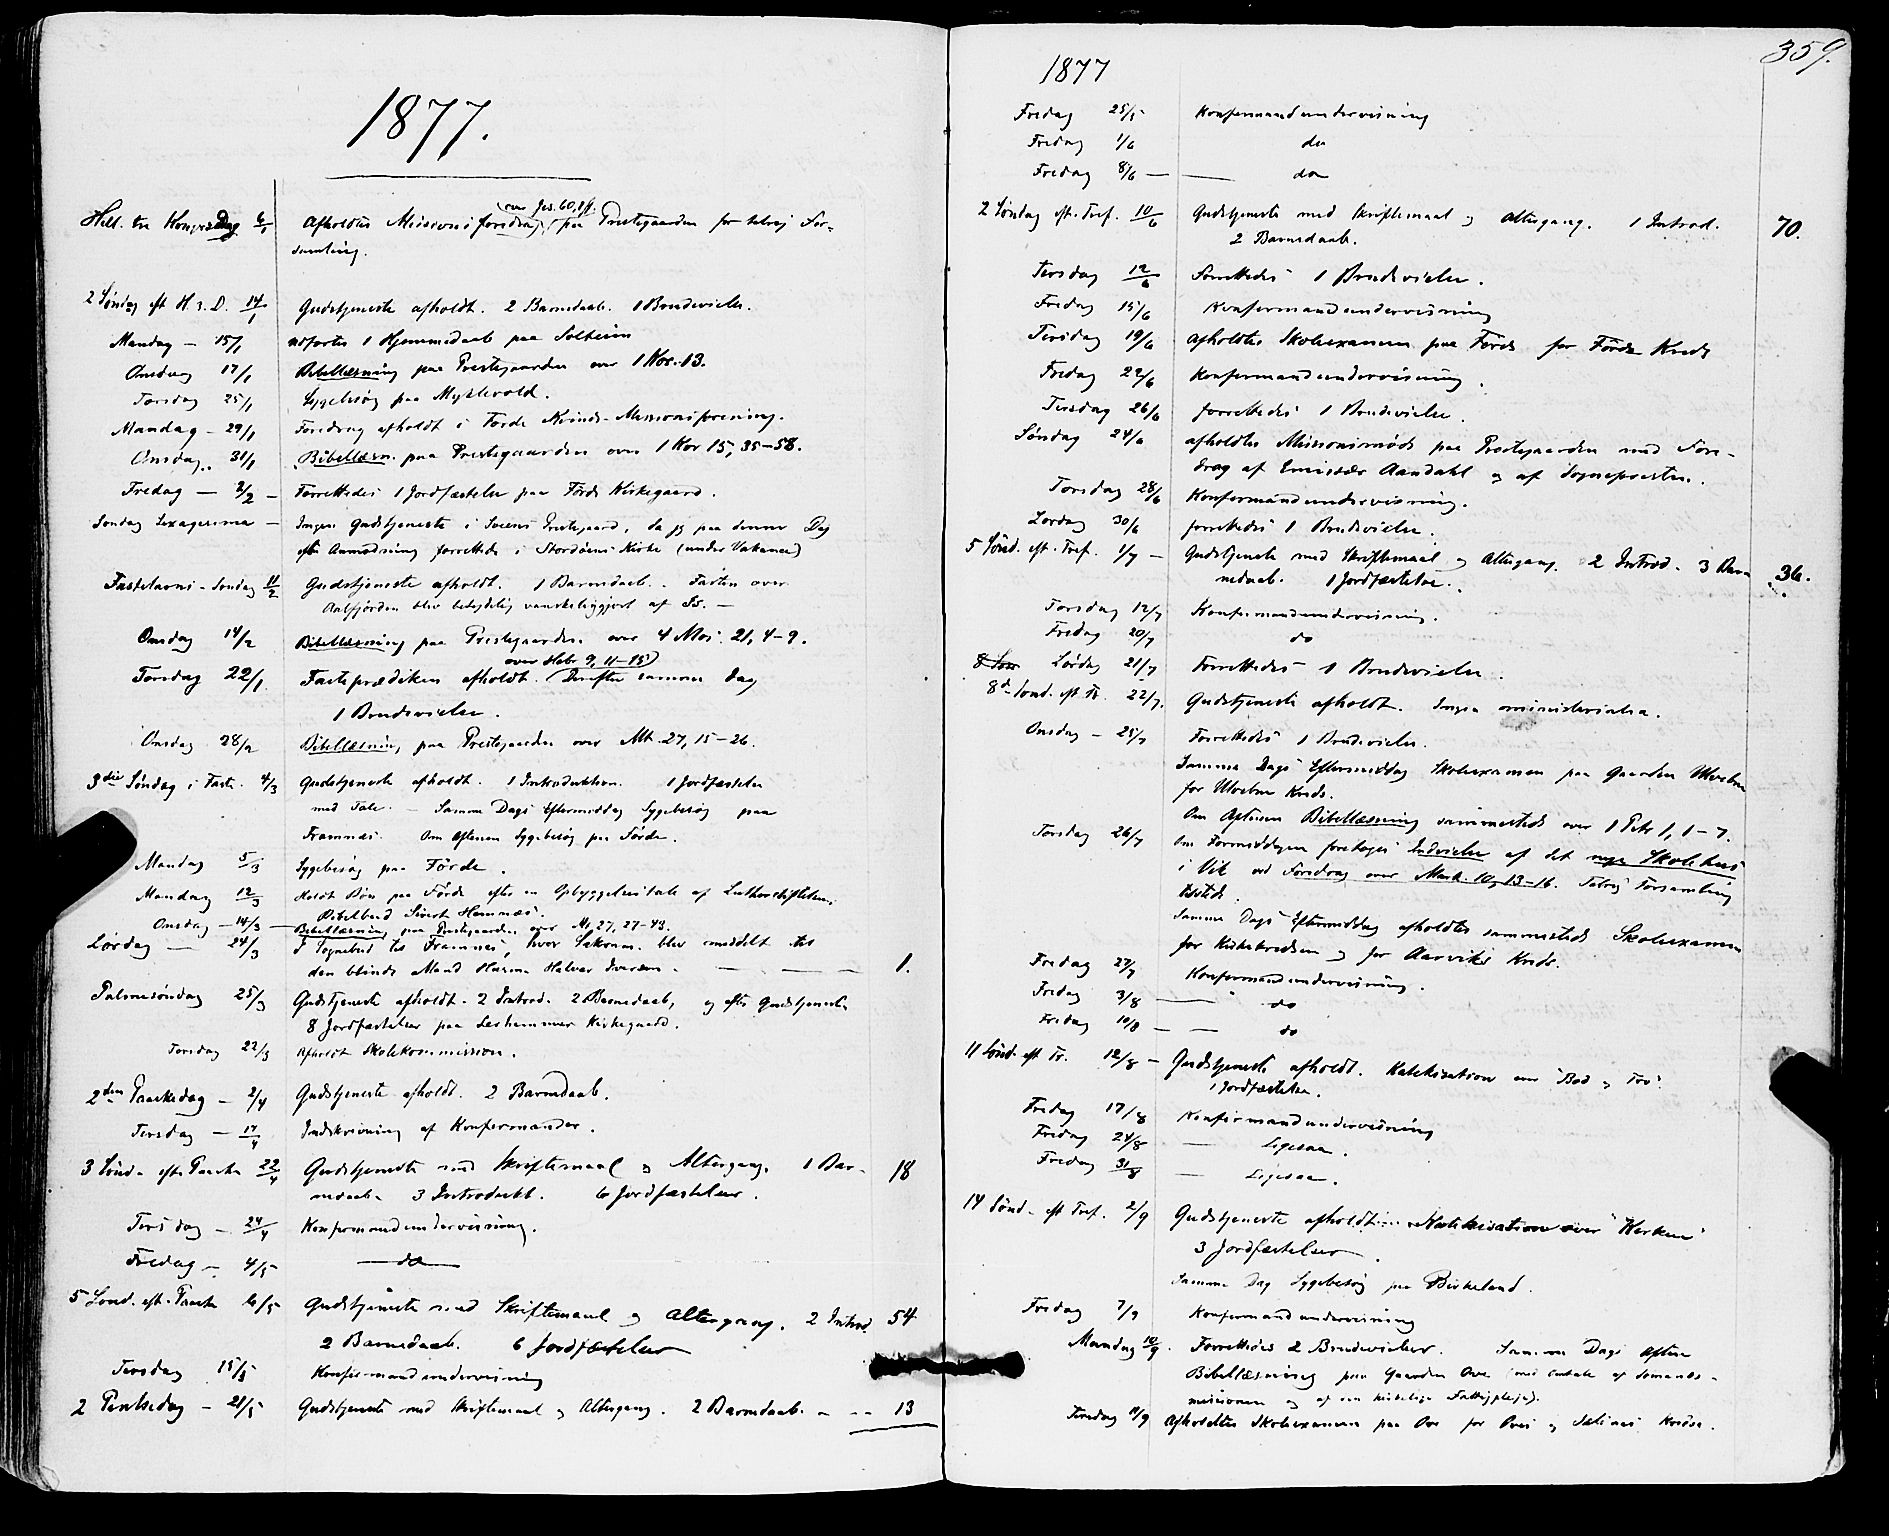 1877.
Hell. tre Kongers Dag 6/1 Afholdtes Missionsforedrag (over Jes. 60, 1 ff) paa Prestegaarden for talrig For-
samling.
2 Søndag eft H. 3. D. 14/1 Gudstjeneste afholdt. 2 Barnedaab. 1 Brudevielse.
Mandag – 15/1 udførtes 1 Hjemmedaab paa Solheim
Onsdag 17/1 Bibellæsning paa Prestegaarden over 1 Kor. 13.
Torsdag 25/1 Sygebesøg paa Myklevold.
Mandag – 29/1 Foredrag afholdt i Førde Kvinde-Missionsforening.
Onsdag.. 31/1 Bibellæsn. paa Prestegaarden over 1 Kor 15, 35–58.
Fredag – 2/2 – Forrettedes 1 Jordfæstelse paa Førde Kirkegaard.
Søndag Sexagesima – Ingen Gudstjeneste i Sveens Prestegjæld, da jeg paa denne Dag
efter Anmodning forrettede i Stordøens Kirke (under Vakance)
Fastelavns-Søndag 11/2 Gudstjeneste afholdt. 1 Barnedaab. Farten over
Aalfjorden blev betydelig vanskeliggjort af Is. –
Onsdag 14/2 Bibellæsning paa Prestegaarden over 4 Mos. 21, 4–9.
Torsdag 22/1 Fasteprædiken afholdt (over Hebr 9, 11–15) Derefter samme Dag
1 Brudevielse.
Onsdag 28/2 Bibellæsning paa Prestegaarden over Mt. 27, 15–26.
3die Søndag i Faste. 4/3 Gudstjeneste afholdt. 1 Introduktion. 1 Jordfæstelse
med Tale. – Samme Dags Eftermiddag Sygebesøg paa
Framnæs. Om Aftenen Sygebesøg paa Førde.
Mandag 5/3 Sygebesøg paa Førde.
Mandag 12/3 Holdt Bøn paa Førde efter en Opbyggelsestale af Lutherstiftelsens
Bibelbud Sivert Hamnæs.
Onsdag – 14/3 – Bibellæsning paa Prestegaarden over Mt, 27, 27–43.
Lørdag – 24/3 I Sognebud til Framnes, hvor Sakram. blev meddelt til
den blinde Mand Husm Halvor Iversen. – – – 1.
Palmesøndag 25/3 Gudstjeneste afholdt. 2 Introd. 2 Barnedaab, og efter Gudstjenesten
8 Jordfæstelser paa Leehammer Kirkegaard.
Torsdag 22/3 Afholdt Skolekommission.
2den Paaskedag – 2/4 Gudstjeneste afholdt. 2 Barnedaab.
Tirsdag – 17/4 Indskrivning af Konfirmander.
3 Sønd. eft. Paaske 22/4 Gudstjeneste med Skriftemaal og Altergang. 1 Bar- 18
nedaab. 3 Introdukt. 6 Jordfæstelser.
Tirsdag – 24/4 Konfirmandundervisning.
Fredag – 4/5 – do –
5 Sønd. eft. Paaske 6/5 Gudstjeneste med Skriftemaal og Altergang. 2 Introd. 54
2 Barnedaab. 6 Jordfæstelser
Tirsdag 15/5 Konfirmandundervisning
2 Pintsedag – 21/5 Gudstjeneste med Skriftemaal og Altergang. 2 Barnedaab. – – 13
359.
1877
Fredag 25/5 Konfirmandundervisning
Fredag 1/6 do
Fredag 8/6 – – do
2 Søndag eft. Tref. 10/6 Gudstjeneste med Skriftemaal og Altergang. 1 Introd. 70.
2 Barnedaab.
Tirsdag 12/6 Forrettedes 1 Brudevielse.
Fredag 15/6 Konfirmandundervisning
Tirsdag 19/6 Afholdtes Skoleexamen paa Førde for Førde Kreds
Fredag 22/6 Konfirmandundervisning.
Tirsdag 26/6 forrettedes 1 Brudevielse.
Søndag 24/6 afholdtes Missionsmøde paa Prestegaarden med Fore-
drag af Emissær Aandahl og af Sognepresten.
Torsdag 28/6 Konfirmandundervisning.
Lørdag 30/6 forrettedes 1 Brudevielse.
5 Sønd. eft. Tref. 1/7 – Gudstjeneste med Skriftemaal og Altergang. 2 Introd. 3 Bar- 36.
nedaab. 1 Jordfæstelse.
Torsdag 12/7 Konfirmandundervisning.
Fredag 20/7 do
8 Søn Lørdag 21/7 Forrettedes 1 Brudevielse.
8de Sønd. eft Tr. 22/7. Gudstjeneste afholdt. Ingen ministerialia.
Onsdag – 25/7 Forrettedes 1 Brudevielse.
Samme Dags Eftermiddag Skoleexamen paa Gaarden Utvebne
for Utvebne Kreds.
Om Aftenen Bibellæsning sammesteds over 1 Petr 1, 1–7.
Torsdag 26/7 Om Formiddagen foretoges Indvielse af det nye Skolehus
i Vik ved Foredrag over Mark. 10, 13–16. Talrig Forsamling
tilstede.
Samme Dags Eftermiddag afholdtes sammesteds Skoleexamen
for Kirkekredsen og for Aarviks Kreds.
Fredag 27/7 Konfirmandundervisning.
Fredag 3/8 – do
Fredag 10/8 – – do
11 Sønd. eft Tr. 12/8 – Gudstjeneste afholdt. Katekisation om "Bod og Tro".
1 Jordfæstelse.
Fredag 17/8 Konfirmandundervisning
Fredag 24/8 – Ligesaa.
Fredag 31/8 – Ligesaa.
14 Sønd. eft Tref. 2/9 Gudstjeneste afholdt. Katekisation over "Kirken"
3 Jordfæstelser.
Samme Dag Sygebesøg paa Birkeland.
Fredag 7/9 Konfirmandundervisning
Mandag 10/9. Forrettedes 2 Brudevielser. Samme Dags Aften
Bibellæsning paa Gaarden Ove (med Omtale af Sømands-
missionen og af den kirkelige Fattigpleje).
Tirsdag 11/9 Afholdtes Skoleexamen paa Ove for Oves og Kredse.